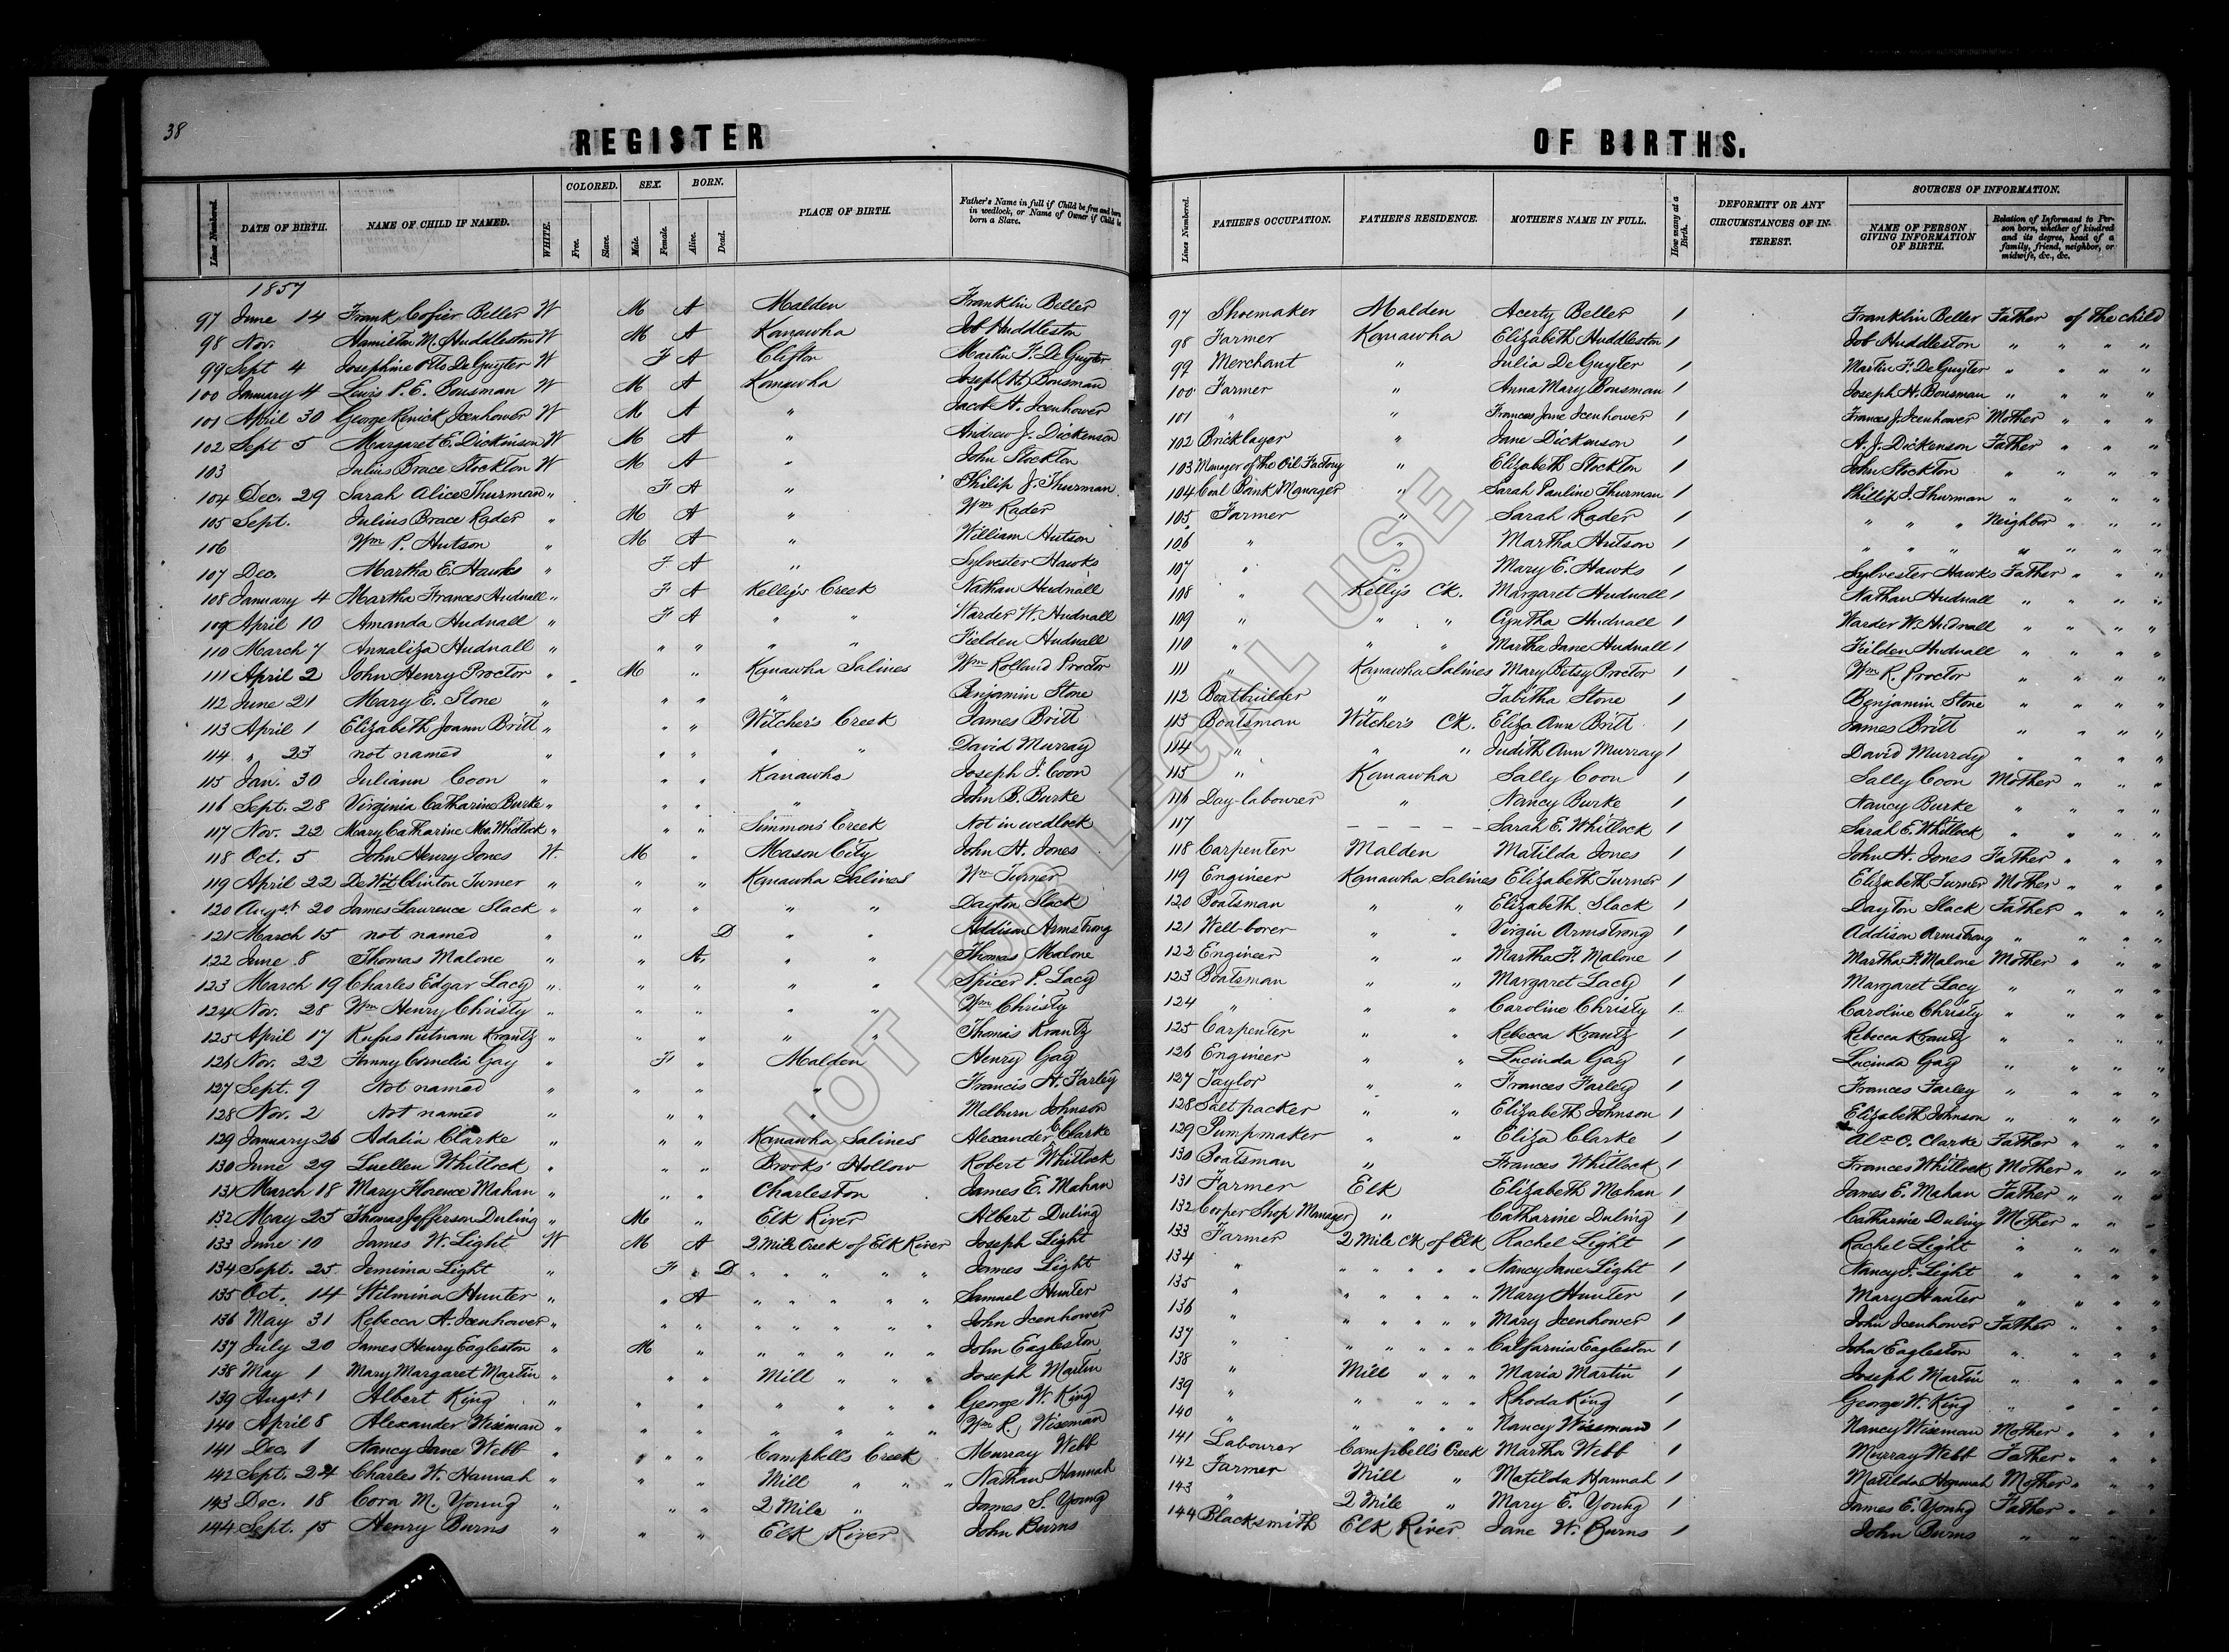 38
REGISTER OF BIRTHS.
Lines Numbered. DATE OF BIRTH. NAME OF CHILD IF NAMED. WHITE. COLORED. Free. Slave. SEX. Male. Female. BORN. Alive. Dead. PLACE OF BIRTH. Father's Name in full if Child be free and born in wedlock, or Name of Owner if Child be born a Slave.
Lines Numbered. FATHER'S OCCUPATION. FATHER'S RESIDENCE. MOTHER'S NAME IN FULL. How many at a Birth. DEFORMITY OR ANY CIRCUMSTANCES OF INTEREST. SOURCES OF INFORMATION. NAME OF PERSON GIVING INFORMATION OF BIRTH. Relation of Informant to Person born, whether of kindred and its degree, head of a family, friend, neighbor, or midwife, &c., &c.
1857
97 June 14 Frank Cofier Beller W M A Malden Franklin Beller 97 Shoemaker Malden Acerty Beller 1 Franklin Beller Father of the child
98 Nov. Hamilton M. Huddleston W M A Kanawha Job Huddleston 98 Farmer Kanawha Elizabeth Huddleston 1 Job Huddleston " " " "
99 Sept 4 Josephine Otto DeGuyter W F A Clifton Martin F. DeGuyter 99 Merchant " Julia DeGuyter 1 Martin F. DeGuyter " " " "
100 January 4 Lewis P. E. Bousman W M A Kanawha Joseph H. Bousman 100 Farmer " Anna Mary Bousman 1 Joseph H. Bousman " " " "
101 April 30 George Renick Icenhower W M A " Jacob H. Icenhower 101 " " Frances Jane Icenhower 1 Frances J. Icenhower Mother " " "
102 Sept 5 Margaret E. Dickinson W M A " Andrew J. Dickenson 102 Bricklayer " Jane Dickenson 1 A. J. Dickenson Father " " "
103 Julius Brace Stockton W M A " John Stockton 103 Manager of the Oil Factory " Elizabeth Stockton 1 John Stockton " " " "
104 Dec. 29 Sarah Alice Thurman " F A " Philip J. Thurman 104 Coal Bank Manager " Sarah Pauline Thurman 1 Phillip J. Thurman " " " "
105 Sept. Julius Brace Rader " M A " Wm Rader 105 Farmer " Sarah Rader 1 " " " Neighbor " " "
106 Wm P. Hutson " M A " William Hutson 106 " " Martha Hutson 1 " " " " " " "
107 Dec. Martha E. Hawks " F A " Sylvester Hawks 107 " " Mary E. Hawks 1 Sylvester Hawks Father " " "
108 January 4 Martha Frances Hudnall " F A Kelley's Creek Nathan Hudnall 108 " Kelly's C'k. Margaret Hudnall 1 Nathan Hudnall " " " "
109 April 10 Amanda Hudnall " F A " " Warder W. Hudnall 109 " " " Cyntha Hudnall 1 Warder W. Hudnall " " " "
110 March 7 Annaliza Hudnall " " " " " Fielden Hudnall 110 " " " Martha Jane Hudnall 1 Fielden Hudnall " " " "
111 April 2 John Henry Proctor " M " Kanawha Salines Wm Rolland Proctor 111 " Kanawha Salines Mary Betsy Proctor 1 Wm R. Proctor " " " "
112 June 21 Mary E. Stone " " " " Benjamin Stone 112 Boatbuilder " Tabitha Stone 1 Benjamin Stone " " " "
113 April 1 Elizabeth Joann Britt " " " Witcher's Creek James Britt 113 Boatsman Witcher's C'k. Eliza Ann Britt 1 James Britt " " " "
114 " 23 not named " " " " " David Murray 114 " " " Judith Ann Murray 1 David Murray " " " "
115 Jan. 30 Juliann Coon " " " Kanawha Joseph J. Coon 115 " Kanawha Sally Coon 1 Sally Coon Mother " " "
116 Sept. 28 Virginia Catharine Burke " " " " John B. Burke 116 Day-labourer " Nancy Burke 1 Nancy Burke " " " "
117 Nov. 22 Mary Catharine Whitlock " " " Simmons' Creek Not in wedlock 117 - - - - - Sarah E. Whitlock 1 Sarah E. Whitlock " " " "
118 Oct. 5 John Henry Jones W. M " Mason City John H. Jones 118 Carpenter Malden Matilda Jones 1 John H. Jones Father " " "
119 April 22 DeWit Clinton Turner " " " Kanawha Salines Wm Turner 119 Engineer Kanawha Salines Elizabeth Turner 1 Elizabeth Turner Mother " " "
120 Augst 20 James Laurence Slack " " " " " Dayton Slack 120 Boatsman " " Elizabeth Slack 1 Dayton Slack Father " " "
121 March 15 not named " " D " " Addison Armstrong 121 Well-borer " " Virgin Armstrong 1 Addison Armstrong " " " "
122 June 8 Thomas Malone " " A. " " Thomas Malone 122 Engineer " " Martha F. Malone 1 Martha F. Malone Mother " " "
123 March 19 Charles Edgar Lacy " " " " " Spicer P. Lacy 123 Boatsman " " Margaret Lacy 1 Margaret Lacy " " " "
124 Nov. 28 Wm Henry Christy " " " " " Wm Christy 124 " " " Caroline Christy 1 Caroline Christy " " " "
125 April 17 Rufus Putnam Krantz " " " " " Thomas Krantz 125 Carpenter " " Rebecca Krantz 1 Rebecca Krantz " " " "
126 Nov. 22 Fanny Cornelia Gay " F " Malden Henry Gay 126 Engineer " " Lucinda Gay 1 Lucinda Gay " " " "
127 Sept. 9 Not named " " " " Francis H. Farley 127 Taylor " " Frances Farley 1 Frances Farley " " " "
128 Nov. 2 Not named " " " " Melburn Johnson 128 Salt packer " " Elizabeth Johnson 1 Elizabeth Johnson " " " "
129 January 26 Adalia Clarke " " " Kanawha Salines Alexander Clarke 129 Pumpmaker " " Eliza Clarke 1 Alx O. Clarke Father " " "
130 June 29 Luellen Whitlock " " " Brooks' Hollow Robert Whitlock 130 Boatsman " Frances Whitlock 1 Frances Whitlock Mother " " "
131 March 18 Mary Florence Mahan " " " Charleston James E. Mahan 131 Farmer Elk Elizabeth Mahan 1 James E. Mahan Father " " "
132 May 25 Thomas Jefferson Duling " M " Elk River Albert Duling 132 Cooper Shop Manager) " Catharine Duling 1 Catharine Duling Mother " " "
133 June 10 James W. Light W M A 2 Mile Creek of Elk River Joseph Light 133 Farmer 2 Mile C'k of Elk Rachel Light 1 Rachel Light " " " "
134 Sept. 25 Jemima Light " F " D " " " " " James Light 134 " " " " " " Nancy Jane Light 1 Nancy J. Light " " " "
135 Oct. 14 Wilmina Hunter " " A " " " " " Samuel Hunter 135 " " " " " " Mary Hunter 1 Mary Hunter " " " "
136 May 31 Rebecca A. Icenhower " " " " " " " " John Icenhower 136 " " " " " " Mary Icenhower 1 John Icenhower Father " " "
137 July 20 James Henry Eagleston " M " " " " " " John Eagleston 137 " " " " " " Calfarnia Eagleston 1 John Eagleston " " " "
138 May 1 Mary Margaret Martin " " " Mill " " " Joseph Martin 138 " Mill " " " Maria Martin 1 Joseph Martin " " " "
139 Augst 1 Albert King " " " " " " " George W. King 139 " " " " " Rhoda King 1 George W. King " " " "
140 April 8 Alexander Wiseman " " " " " " " Wm R. Wiseman 140 " " " " " Nancy Wiseman 1 Nancy Wiseman Mother " " "
141 Dec. 1 Nancy Jane Webb " " " Campbell's Creek Murray Webb 141 Labourer Campbell's Creek Martha Webb 1 Murray Webb Father " " "
142 Sept. 24 Charles W. Hannah " " " Mill " " " Nathan Hannah 142 Farmer Mill " Matilda Hannah 1 Matilda Hannah Mother " " "
143 Dec. 18 Cora M. Young " " " 2 Mile " James S. Young 143 " 2 Mile " Mary E. Young 1 James E. Young Father " " "
144 Sept. 15 Henry Burns " " " Elk River John Burns 144 Blacksmith Elk River Jane W. Burns 1 John Burns " " " "
NOT FOR LEGAL USE